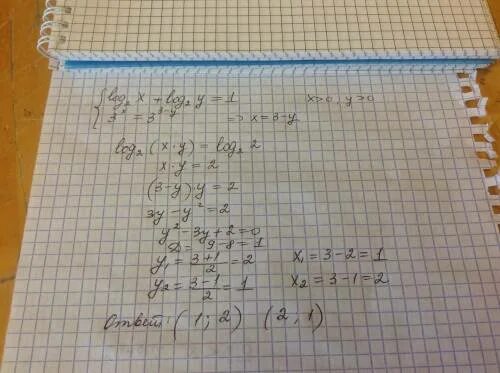 { log₂ x + log₂ y = 1     x>0, y>0
3ˣ = 3³⁻ʸ   => x = 3-y
log₂ (x·y) = log₂ 2
x·y = 2
(3-y)·y = 2
3y - y² = 2
y² - 3y + 2 = 0
D = 9-8 = 1
y₁ = (3+1)/2 = 2     x₁ = 3-2 = 1
y₂ = (3-1)/2 = 1     x₂ = 3-1 = 2
Ответ: (1; 2)   (2, 1)